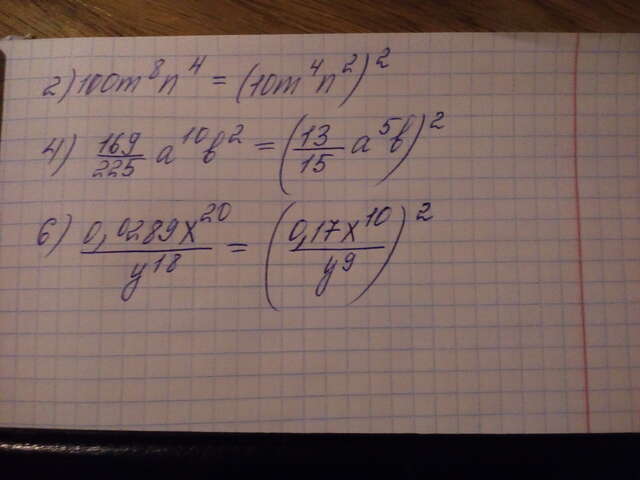 2) 100m⁸n⁴ = (10m⁴n²)²
4) 169/225 a¹⁰b² = (13/15 a⁵b)²
6) 0,0289x²⁰/y¹⁸ = (0,17x¹⁰/y⁹)²